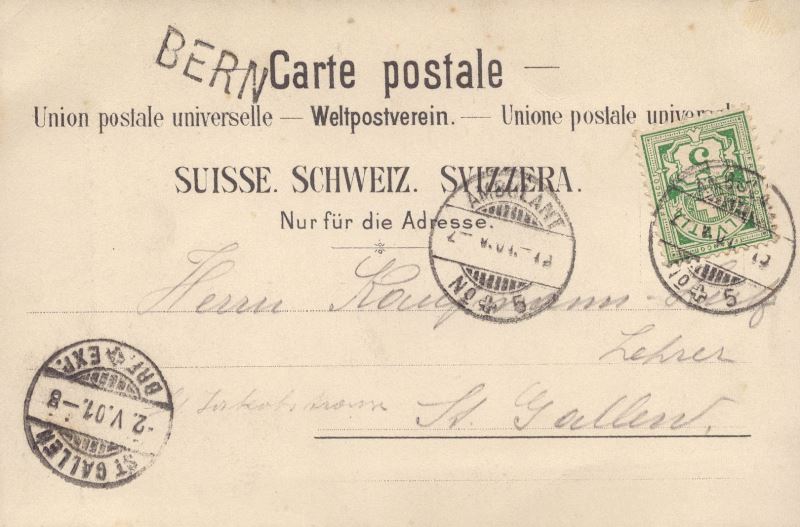 BERN
Carte postale —
Union postale universelle — Weltpostverein. — Unione postale universale
SUISSE. SCHWEIZ. SVIZZERA.
Nur für die Adresse.
AMBULANT
No 5
5
Herrn Kaufmann-
Lehrer
St. Gallen.
BRF. EXP.
-2.V.01.-8
ST GALLEN